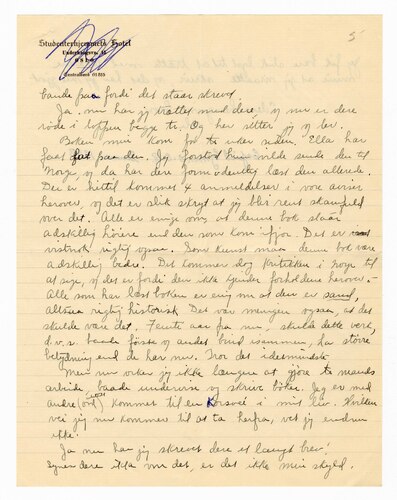 Studenterhjemmets Hotel
Underhaugsvn. 15
OSLO
Centralbord 61755
5
bande paa fordi det staar skrevet.
Ja, nu har jeg trættet med dere, og nu er dere
røde i toppen begge to. Og her sitter jeg og ler.
Boken min kom for to uker siden. Ella har
faat fat paa den. Jeg forstod hun vilde sende den til
Norge, og da har dere formodentlig læst den allerede.
Der er hittil kommet 4 anmeldelser i vore aviser
herover, og det er slik skryt at jeg blir rent skamfuld
over det. Alle er enige om at denne bok staar
adskillig höiere end den som kom ifjor. Det er
vistnok rigtig ogsaa. Som kunst maa denne bok være
adskillig bedre. Det kommer dog kritikken i Norge til
at si, og det er fordi den ikke kjender forholdene herover.
Alle som har læst boken er enig om at den er sand,
altsaa rigtig historisk. Det var meningen ogsaa, at det
skulde være det. Femti aar fra nu skulde dette verk,
d.v.s. baade første og andet bind sammen, ha større
betydning end de har nu. Tror det idetmindste.
Men nu orker jeg ikke længer at gjøre to mands
arbeide, baade undervise og skrive böker. Jeg er med
andre ord kommet til en korsvei i mit liv. Hvilken
vei jeg nu kommer til at ta herfra, vet jeg endnu
ikke.
Ja nu har jeg skrevet dere et langt brev!
Synes dere ikke om det, er det ikke min skyld.